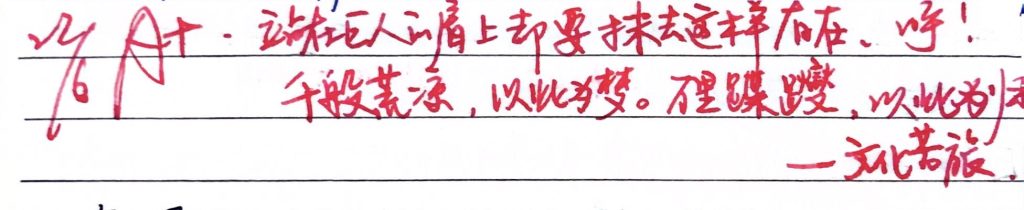 26/6 A+. 站在巨人的肩上却要抹去这样存在、哼!
千般荒凉,以此为梦。万里蹀躞,以此为归
—文化苦旅.